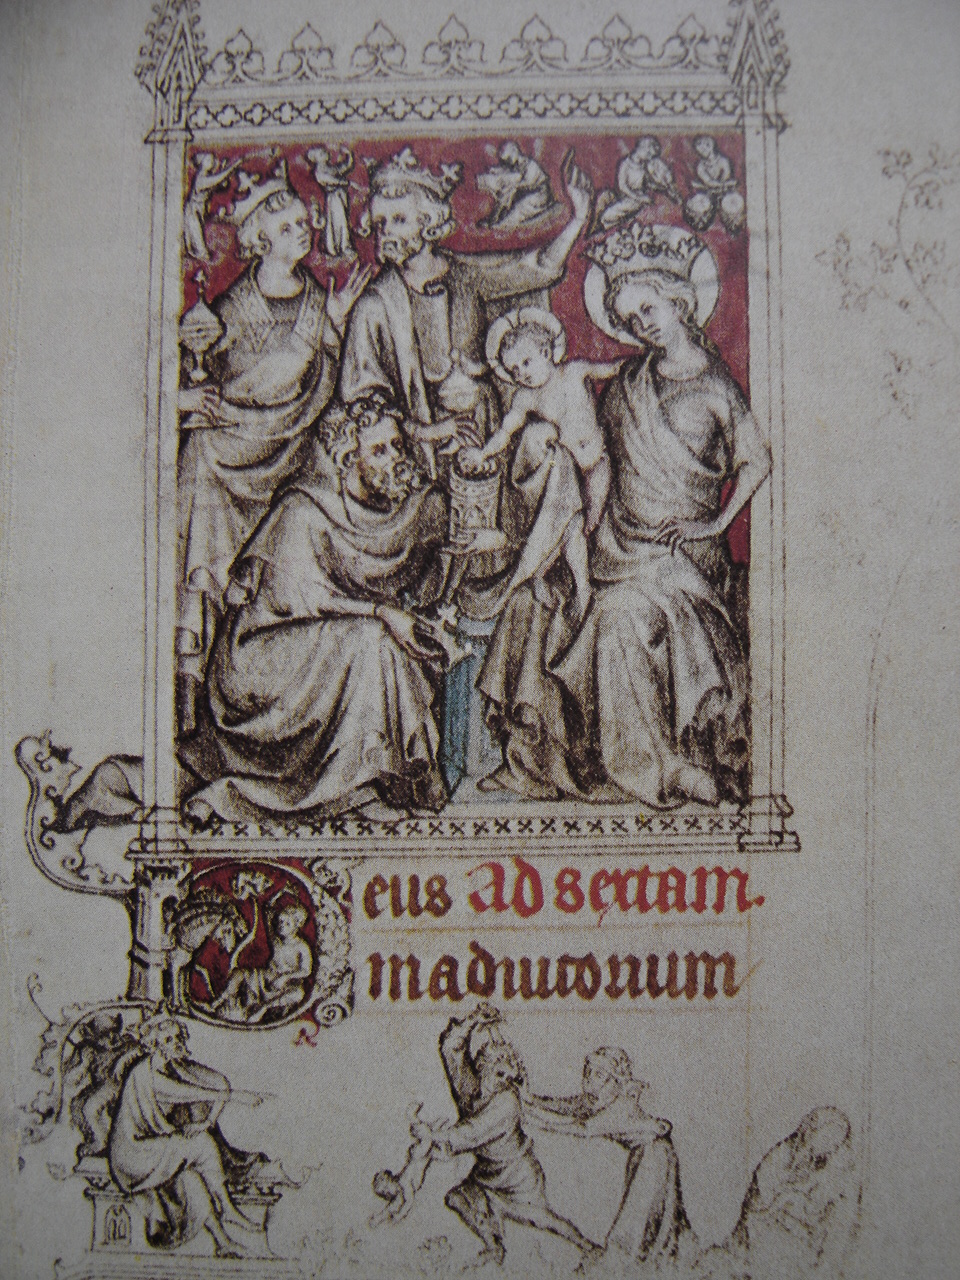 eus ad sextam.
in adiutorium